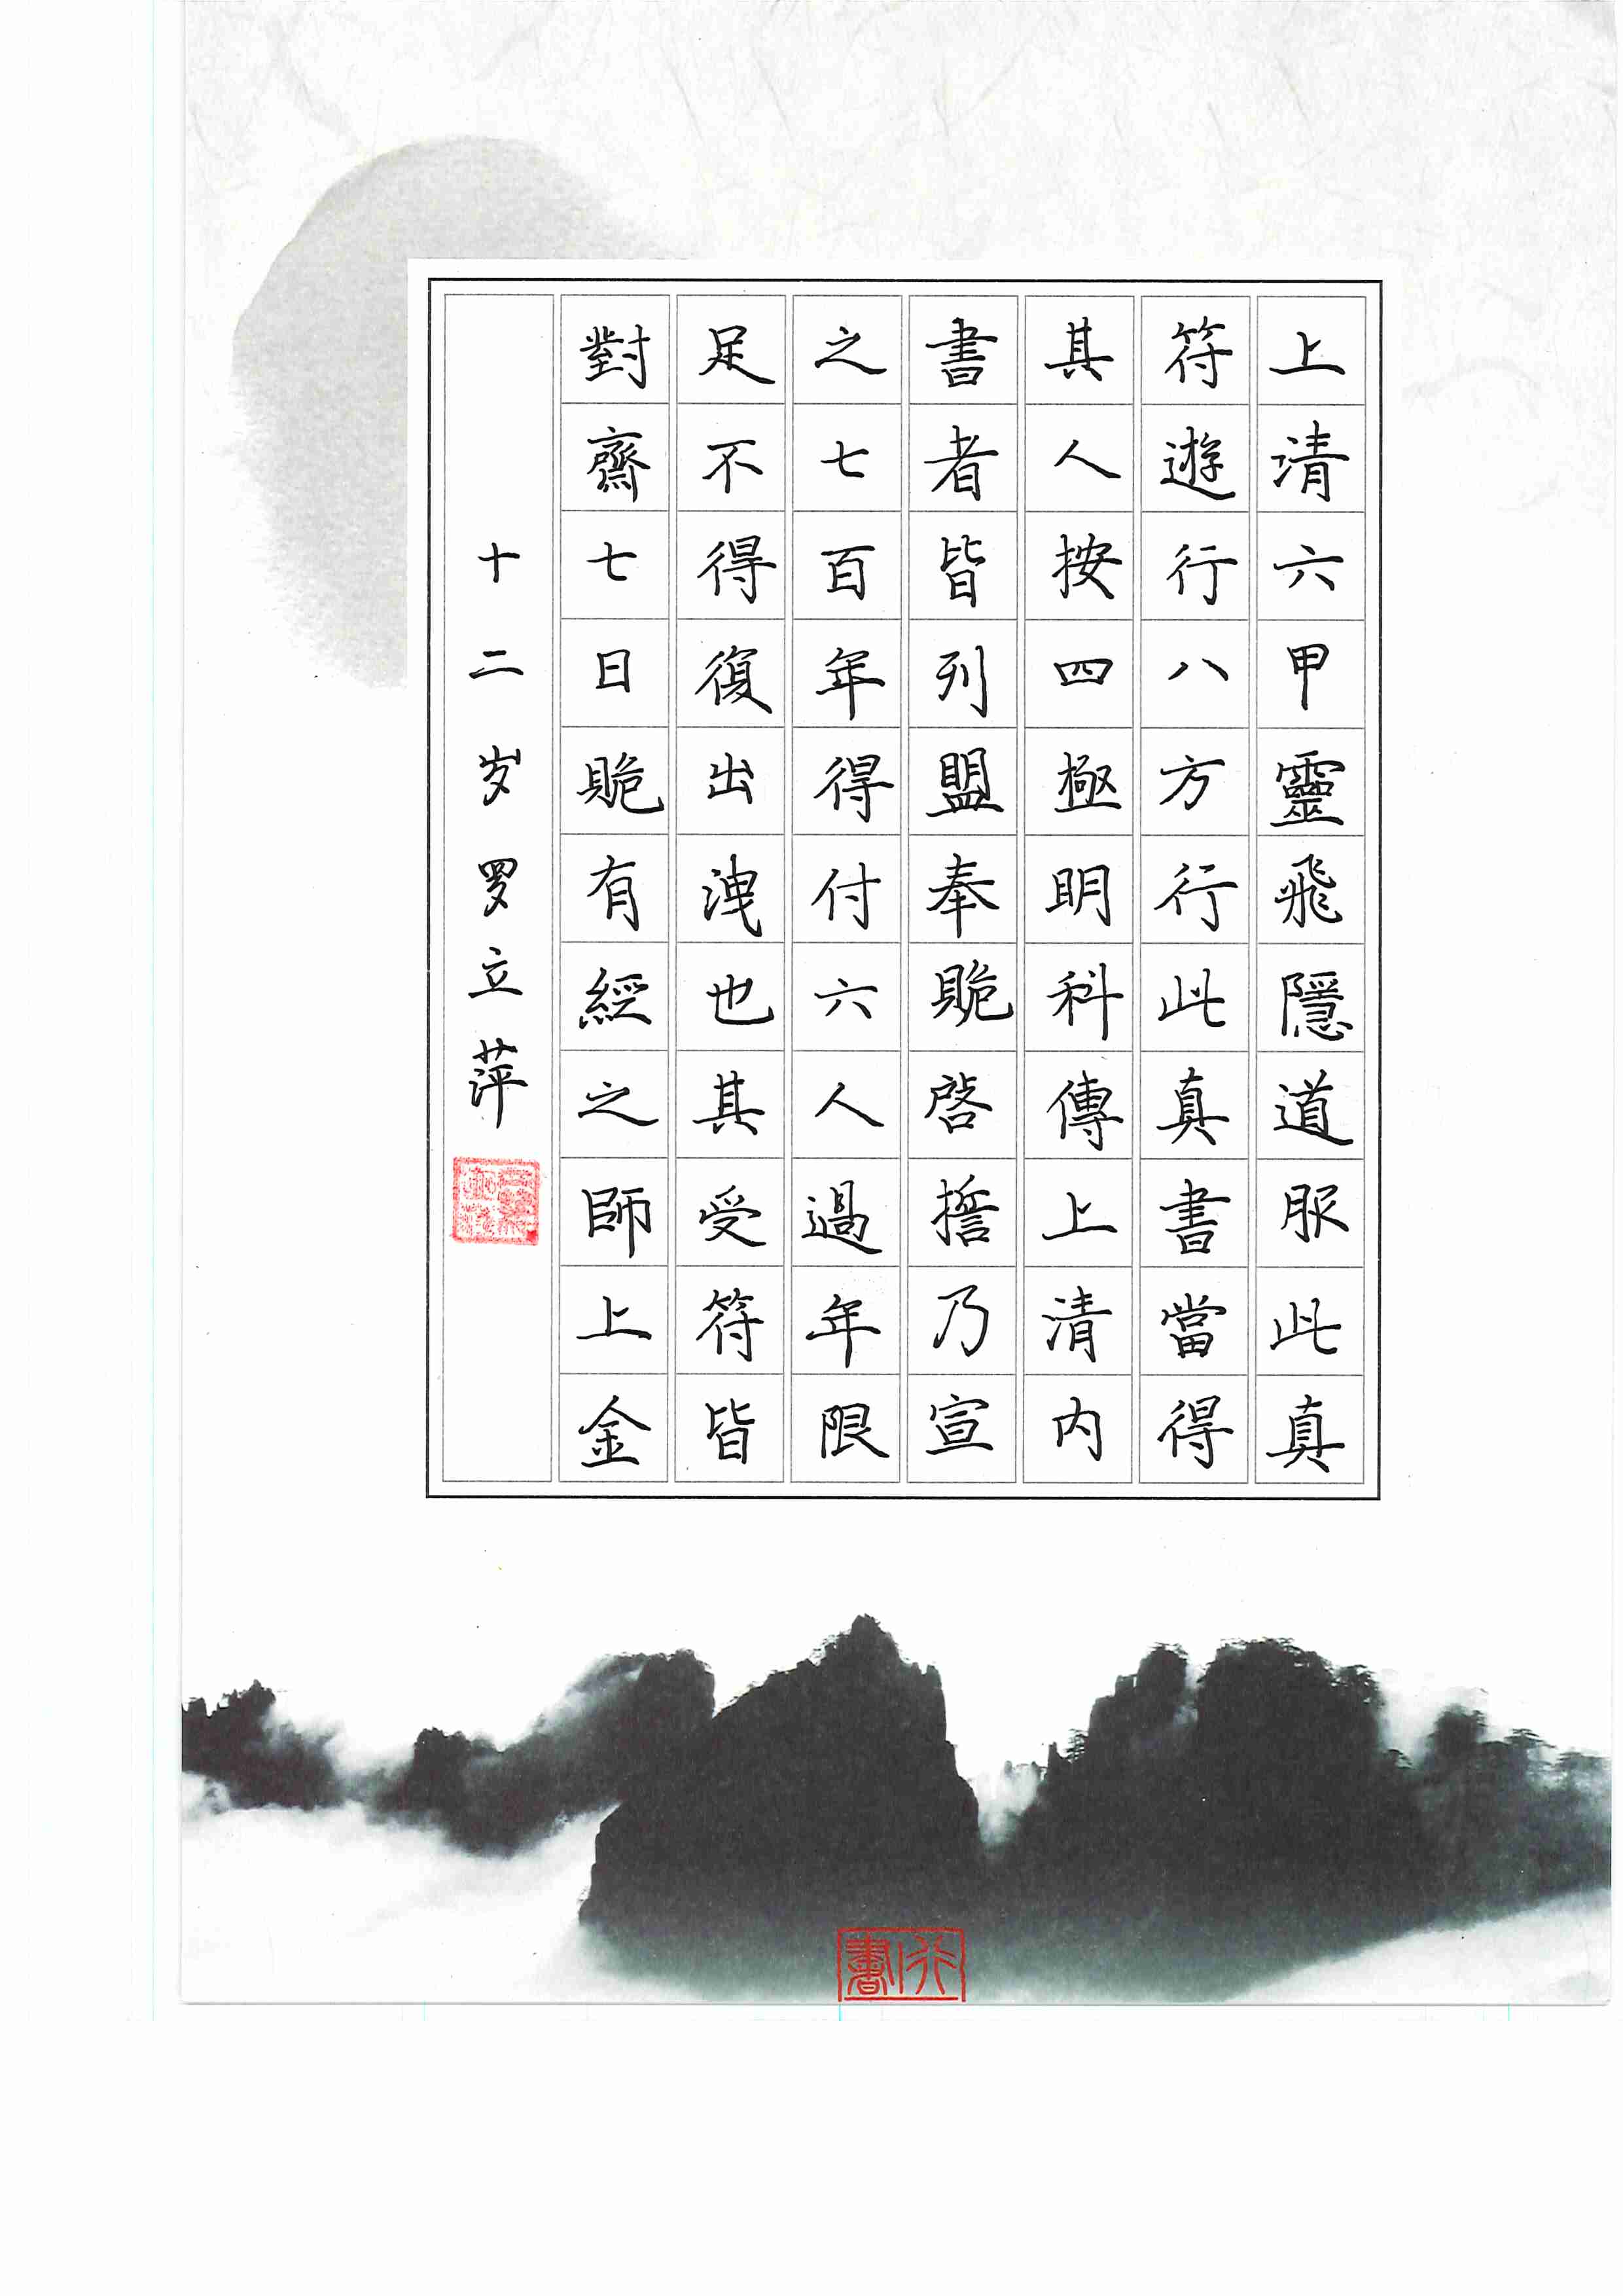 上清六甲靈飛隱道服此真
符遊行八方行此真書當得
其人按四極明科傳上清内
書者皆列盟奉賝啓擔乃宣
之七百年得付六人過年限
足不得復出洩也其受符皆
對齋七日賝有經之師上金
十二岁罗立萍